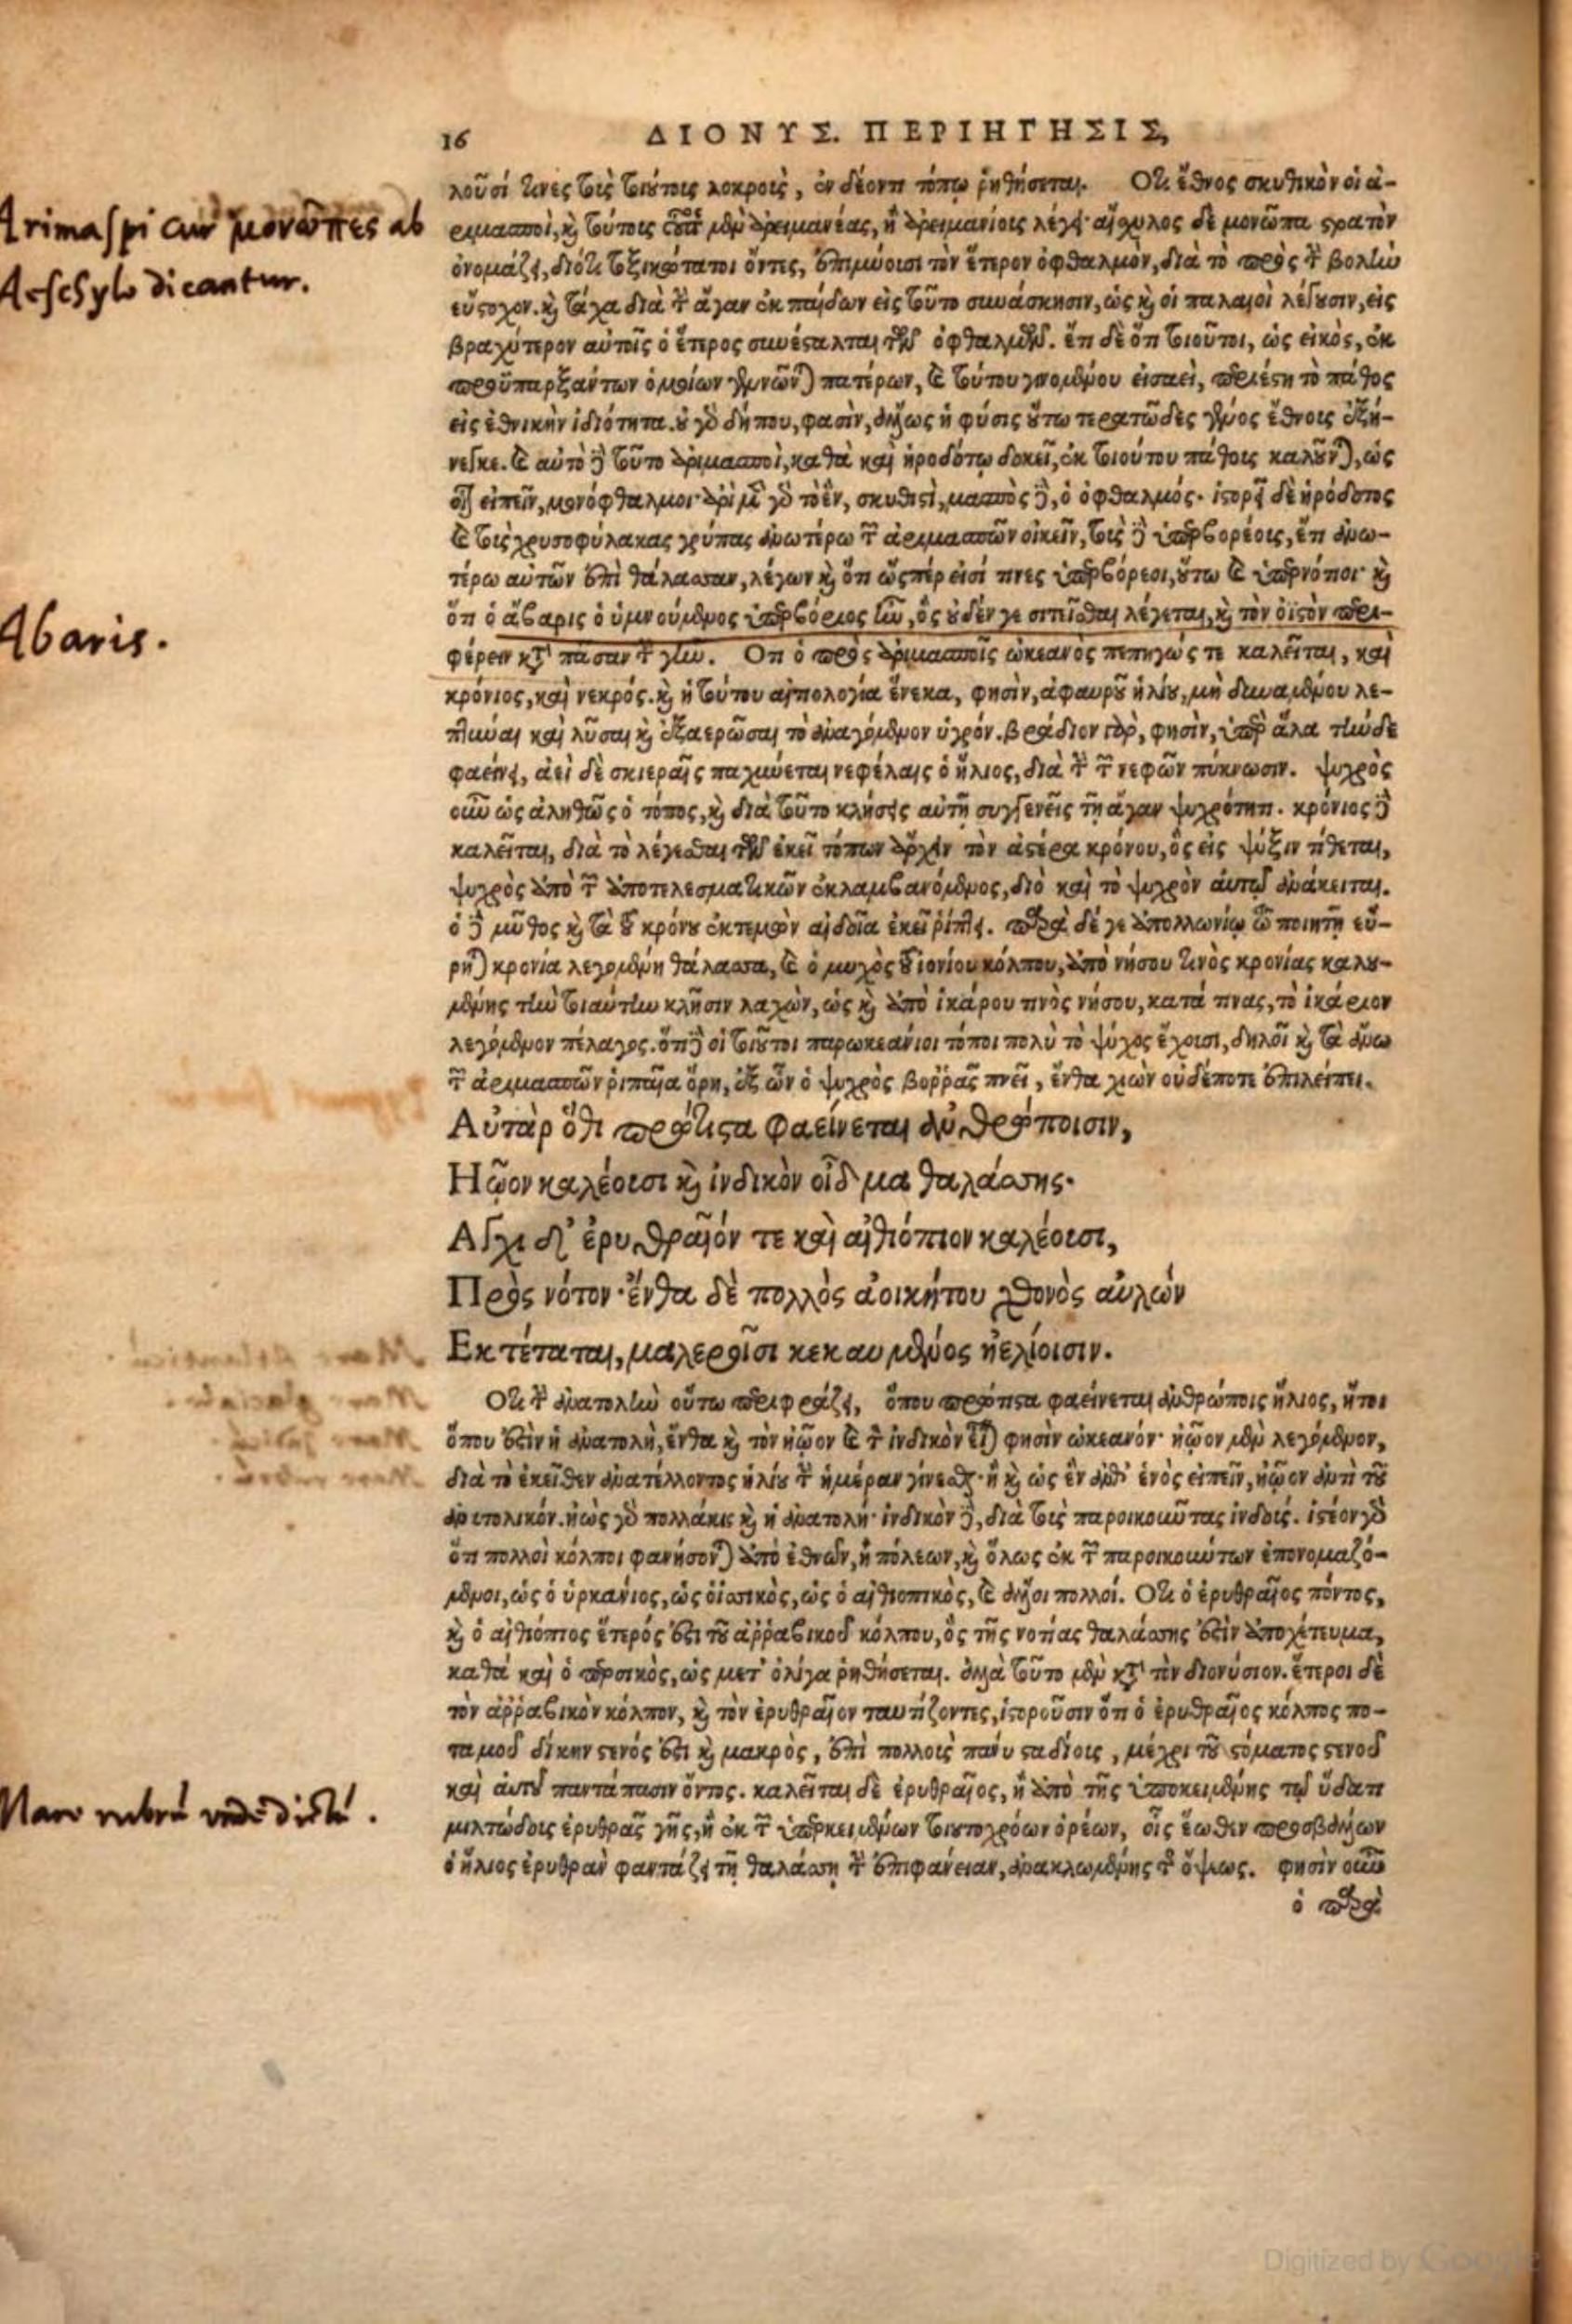 16 ΔΙΟΝΥΣ. ΠΕΡΙΗΓΗΣΙΣ,
λοῦσί τινες τοὺς τοιούτους λοκροὺς, ἐν δέοντι τόπῳ ῥηθήσεται. Οτι ἔθνος σκυθικὸν οἱ ἀ-
ριμασποὶ, καὶ τούτους μὲν ἀρειμανέας, ἢ ἀρειμανίους λέγει· αἴσχυλος δὲ μονῶπα στρατὸν
ὀνομάζει, διότι τοξικώτατοι ὄντες, ἐπιμύουσι τὸν ἕτερον ὀφθαλμὸν, διὰ τὸ πρὸς τὴν βολὴν
εὔστοχον. καὶ τάχα διὰ τὴν ἄγαν ἐκ παίδων εἰς τοῦτο συνάσκησιν, ὡς καὶ οἱ παλαιοὶ λέγουσιν, εἰς
βραχύτερον αὐτοῖς ὁ ἕτερος συνέσταλται τῶν ὀφθαλμῶν. ἔτι δὲ ὅτι τοιοῦτοι, ὡς εἰκὸς, ἐκ
προϋπαρξάντων ὁμοίων γεννῶνται πατέρων, καὶ τούτου γινομένου εἰσαεὶ, περιέστη τὸ πάθος
εἰς ἐθνικὴν ἰδιότητα. οὐ γὰρ δήπου, φασὶν, ἄλλως ἡ φύσις οὕτω τερατῶδες γένος ἔθνους ἐξή-
νεγκε. καὶ αὐτὸ δὲ τοῦτο ἀριμασποὶ, καθὰ καὶ ἡροδότῳ δοκεῖ, ἐκ τοιούτου πάθους καλοῦνται, ὡς
οἷον εἰπεῖν, μονόφθαλμοι· ἀρὶ μὲν γὰρ τὸ ἓν, σκυθιστὶ, μασπὸς δὲ, ὁ ὀφθαλμός. ἱστορεῖ δὲ ἡρόδοτος
καὶ τοὺς χρυσοφύλακας γρύπας ἀνωτέρω τῶν ἀριμασπῶν οἰκεῖν, τοὺς δὲ ὑπερβορέους, ἔτι ἀνω-
τέρω αὐτῶν ἐπὶ θάλασσαν, λέγων καὶ ὅτι ὥσπέρ εἰσί τινες ὑπερβόρεοι, οὕτω καὶ ὑπερνότιοι· καὶ
ὅτι ὁ ἄβαρις ὁ ὑμνούμενος ὑπερβόρειος ἦν, ὃς οὐδέν γε σιτεῖσθαι λέγεται, καὶ τὸν ὀϊστὸν περι-
φέρειν κατὰ πᾶσαν τὴν γῆν. Οτι ὁ πρὸς ἀριμασποῖς ὠκεανὸς πεπηγώς τε καλεῖται, καὶ
κρόνιος, καὶ νεκρός. καὶ ἡ τούτου αἰτιολογία ἕνεκα, φησὶν, ἀφαυροῦ ἡλίου, μὴ δυναμένου λε-
πτῦναι καὶ λῦσαι καὶ ἐξαερῶσαι τὸ ἀναγόμενον ὑγρόν. βράδιον γὰρ, φησὶν, ὑπὲρ ἅλα τήνδε
φαείνει, ἀεὶ δὲ σκιεραῖς παχύνεται νεφέλαις ὁ ἥλιος, διὰ τὴν τῶν νεφῶν πύκνωσιν. ψυχρὸς
οὖν ὡς ἀληθῶς ὁ τόπος, καὶ διὰ τοῦτο κλήσεις αὐτῇ συγγενεῖς τῇ ἄγαν ψυχρότητι. κρόνιος δὲ
καλεῖται, διὰ τὸ λέγεσθαι τῶν ἐκεῖ τόπων ἄρχειν τὸν ἀστέρα κρόνου, ὃς εἰς ψύξιν τίθεται,
ψυχρὸς ἀπὸ τῶν ἀποτελεσματικῶν ἐκλαμβανόμενος, διὸ καὶ τὸ ψυχρὸν αὐτῷ ἀνάκειται.
ὁ δὲ μῦθος καὶ τὰ τοῦ κρόνου ἐκτεμὼν αἰδοῖα ἐκεῖ ῥίπτει. παρὰ δέ γε ἀπολλωνίῳ τῷ ποιητῇ εὕ-
ρηται κρονία λεγομένη θάλασσα, καὶ ὁ μυχὸς τοῦ ἰονίου κόλπου, ἀπὸ νήσου τινὸς κρονίας καλου-
μένης τὴν τοιαύτην κλῆσιν λαχὼν, ὡς καὶ ἀπὸ ἰκάρου τινὸς νήσου, κατά τινας, τὸ ἰκάριον
λεγόμενον πέλαγος. ὅτι δὲ οἱ τοιοῦτοι παρωκεάνιοι τόποι πολὺ τὸ ψύχος ἔχουσι, δηλοῖ καὶ τὰ ἄνω
τῶν ἀριμασπῶν ῥιπαῖα ὄρη, ἐξ ὧν ὁ ψυχρὸς βοῤῥᾶς πνεῖ, ἔνθα χιὼν οὐδέποτε ἐπιλείπει.
Αὐτὰρ ὅθι πρώτιστα φαείνεται ἀνθρώποισιν,
Ηῷον καλέουσι καὶ ἰνδικὸν οἶδμα θαλάσσης.
Αγχι δ' ἐρυθραῖόν τε καὶ αἰθιόπιον καλέουσι,
Πρὸς νότον· ἔνθα δὲ πολλὸς ἀοικήτου χθονὸς αὐλὼν
Εκτέταται, μαλεροῖσι κεκαυμένος ἠελίοισιν.
Οτι τὴν ἀνατολὴν οὕτω περιφράζει, ὅπου πρώτιστα φαείνεται ἀνθρώποις ἥλιος, ἤτοι
ὅπου ἐστὶν ἡ ἀνατολὴ, ἔνθα καὶ τὸν ἠῷον καὶ τὸν ἰνδικὸν εἶναι φησὶν ὠκεανόν· ἠῷον μὲν λεγόμενον,
διὰ τὸ ἐκεῖθεν ἀνατέλλοντος ἡλίου τὴν ἡμέραν γίνεσθαι· ἢ καὶ ὡς ἓν ἀνθ' ἑνὸς εἰπεῖν, ἠῷον ἀντὶ τοῦ
ἀνατολικόν. ἠὼς γὰρ πολλάκις καὶ ἡ ἀνατολή· ἰνδικὸν δὲ, διὰ τοὺς παροικοῦντας ἰνδούς. ἰστέον γὰρ
ὅτι πολλοὶ κόλποι φανήσονται ἀπὸ ἐθνῶν, ἢ πόλεων, καὶ ὅλως ἐκ τῶν παροικούντων ἐπονομαζό-
μενοι, ὡς ὁ ὑρκάνιος, ὡς ὁ ἰσσικὸς, ὡς ὁ αἰθιοπικὸς, καὶ ἄλλοι πολλοί. Οτι ὁ ἐρυθραῖος πόντος,
καὶ ὁ αἰθιόπιος ἕτερός ἐστι τοῦ ἀῤῥαβικοῦ κόλπου, ὃς τῆς νοτίας θαλάσσης ἐστὶν ἀποχέτευμα,
καθὰ καὶ ὁ περσικὸς, ὡς μετ' ὀλίγα ῥηθήσεται. ἀλλὰ τοῦτο μὲν κατὰ τὸν διονύσιον. ἕτεροι δὲ
τὸν ἀῤῥαβικὸν κόλπον, καὶ τὸν ἐρυθραῖον ταυτίζοντες, ἱστοροῦσιν ὅτι ὁ ἐρυθραῖος κόλπος πο-
ταμοῦ δίκην στενός ἐστι καὶ μακρὸς, ἐπὶ πολλοὺς πάνυ σταδίους, μέχρι τοῦ στόματος στενοῦ
καὶ αὐτοῦ παντάπασιν ὄντος. καλεῖται δὲ ἐρυθραῖος, ἢ ἀπὸ τῆς ὑποκειμένης τῷ ὕδατι
μιλτώδους ἐρυθρᾶς γῆς, ἢ ἐκ τῶν ὑπερκειμένων τοιουτοχρόων ὀρέων, οἷς ἕωθεν προσβάλλων
ὁ ἥλιος ἐρυθρὰν φαντάζει τῇ θαλάσσῃ τὴν ἐπιφάνειαν, ἀνακλωμένης τῆς ὄψεως. φησὶν οὖν
ὁ παρὰ
Arimaspi cur μονῶπες ab
Aeschylo dicantur.
Abaris.
Mare rubrū unde dictū.
Digitized by Google